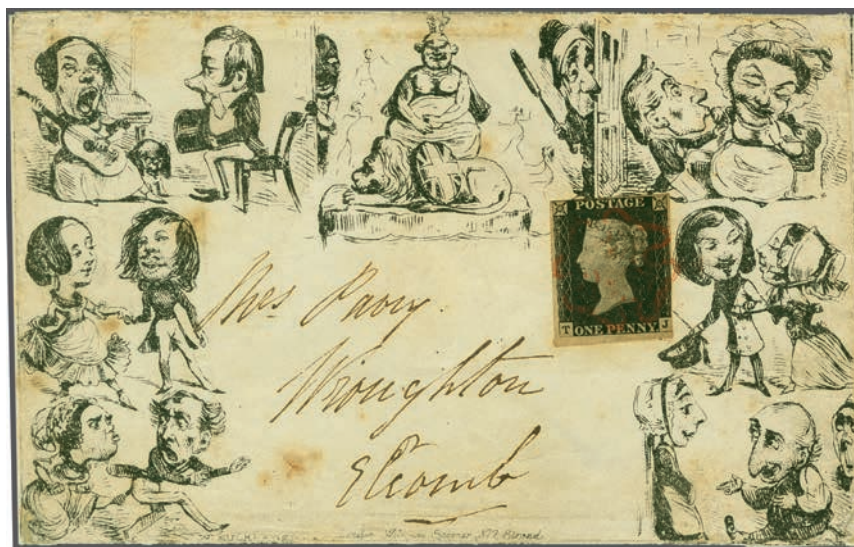 POSTAGE
T ONE PENNY J
Mrs Pavy.
Wroughton
Elcomb